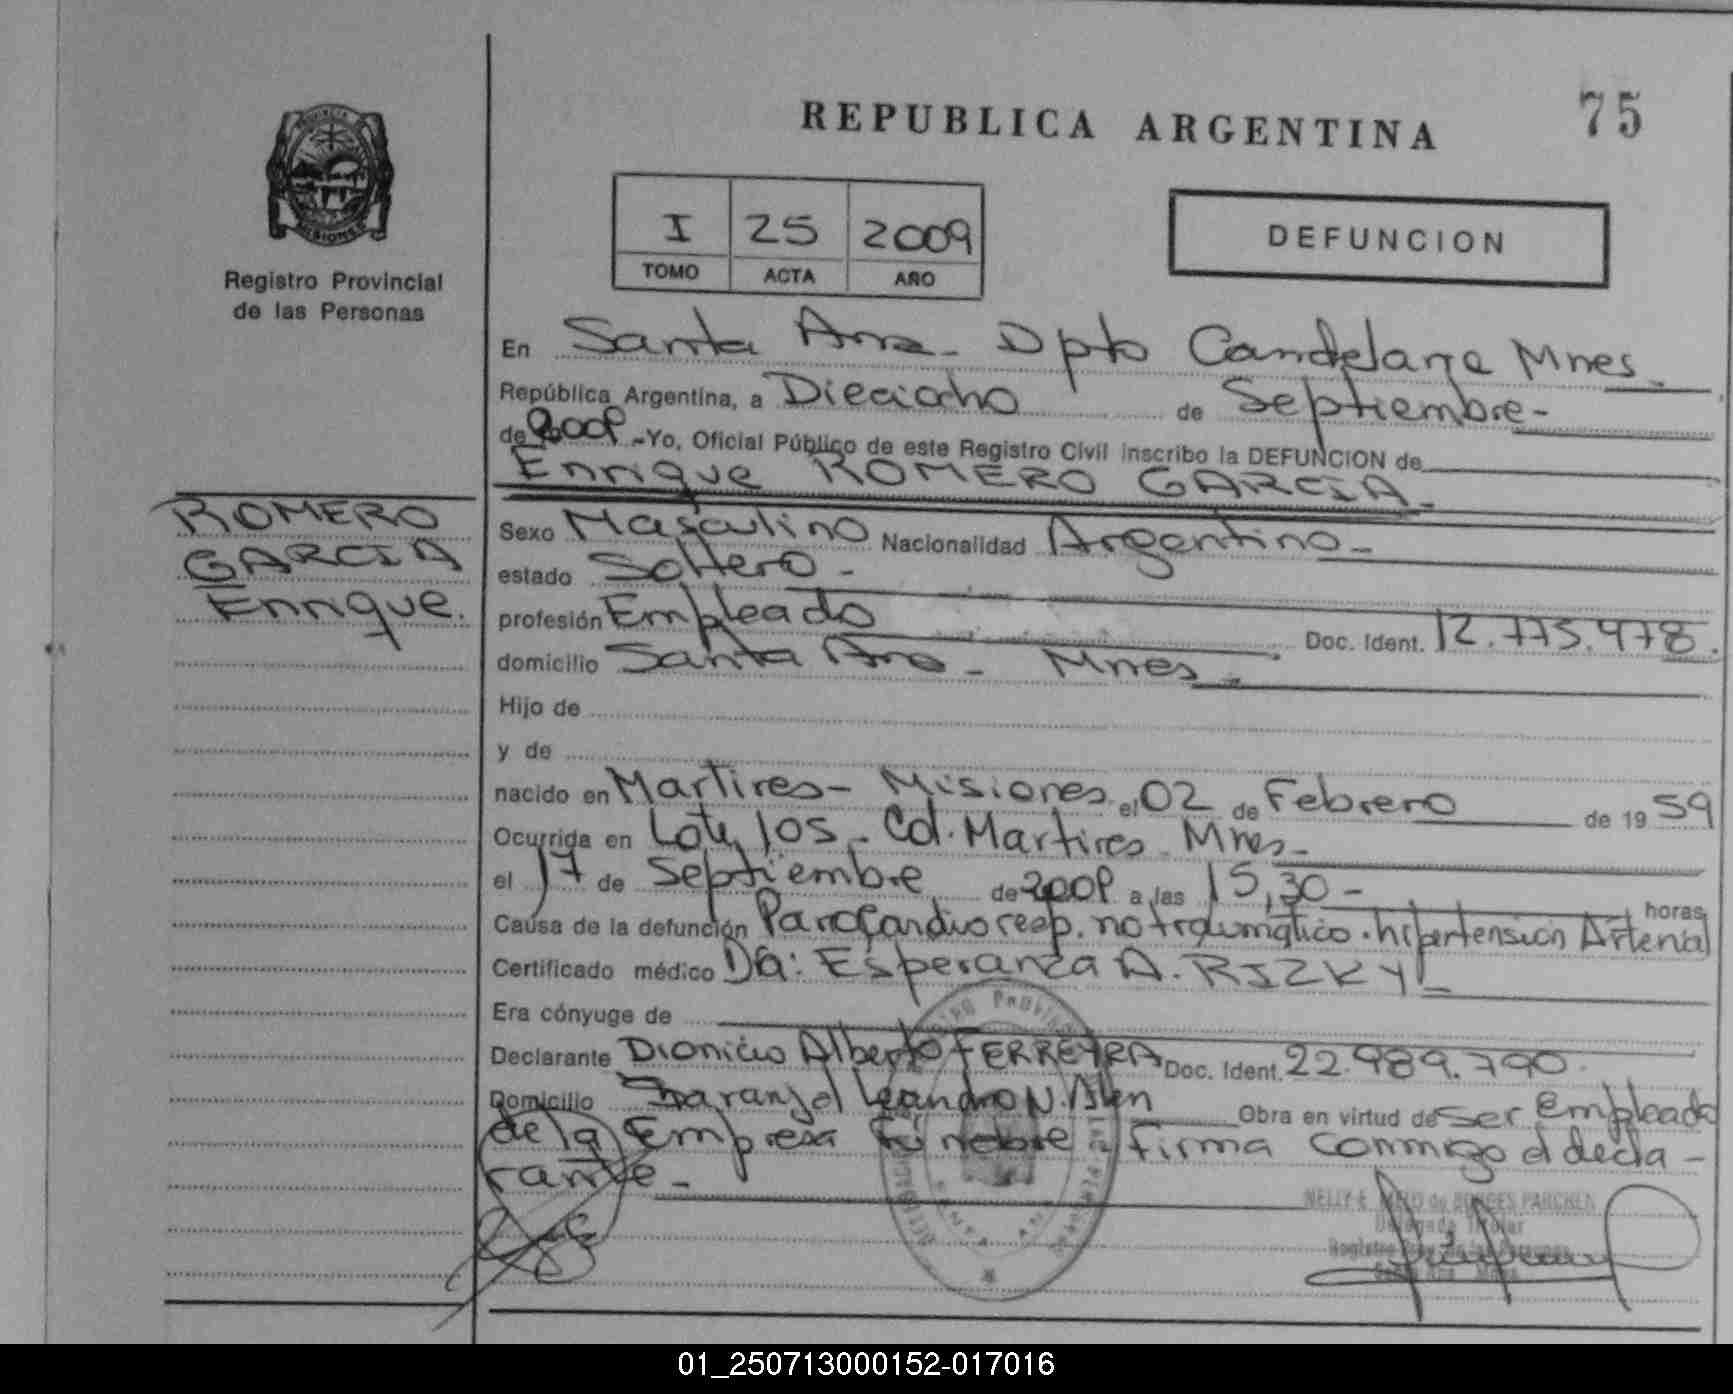 REPUBLICA ARGENTINA
75
PROVINCIA DE
MISIONES
Registro Provincial
de las Personas
I 25 2009
TOMO ACTA AÑO
DEFUNCION
En Santa Ana - Dpto Candelaria Mnes
República Argentina, a Dieciocho de Septiembre -
de 2009 - Yo, Oficial Público de este Registro Civil inscribo la DEFUNCION de
Enrique ROMERO GARCIA -
ROMERO
GARCIA
Enrique.
Sexo Masculino Nacionalidad Argentino -
estado Soltero -
profesión Empleado Doc. Ident. 12.775.478.
domicilio Santa Ana - Mnes -
Hijo de
y de
nacido en Martires - Misiones el 02 de Febrero de 19 59
Ocurrida en Lote 105 - Col. Martires - Mnes -
el 17 de Septiembre de 2009 a las 15,30 - horas
Causa de la defunción Paro Cardio resp. no traumático. hipertensión Arterial
Certificado médico Dra: Esperanza A. RIZKY -
Era cónyuge de
Declarante Dionicio Alberto FERREYRA Doc. Ident. 22.989.790.
Domicilio Leandro N. Alen Obra en virtud de ser empleado
de la Empresa Fúnebre - firma conmigo el decla-
rante -
NELLY E. MELO de BORGES PARCHEN
Delegada Titular
01_250713000152-017016